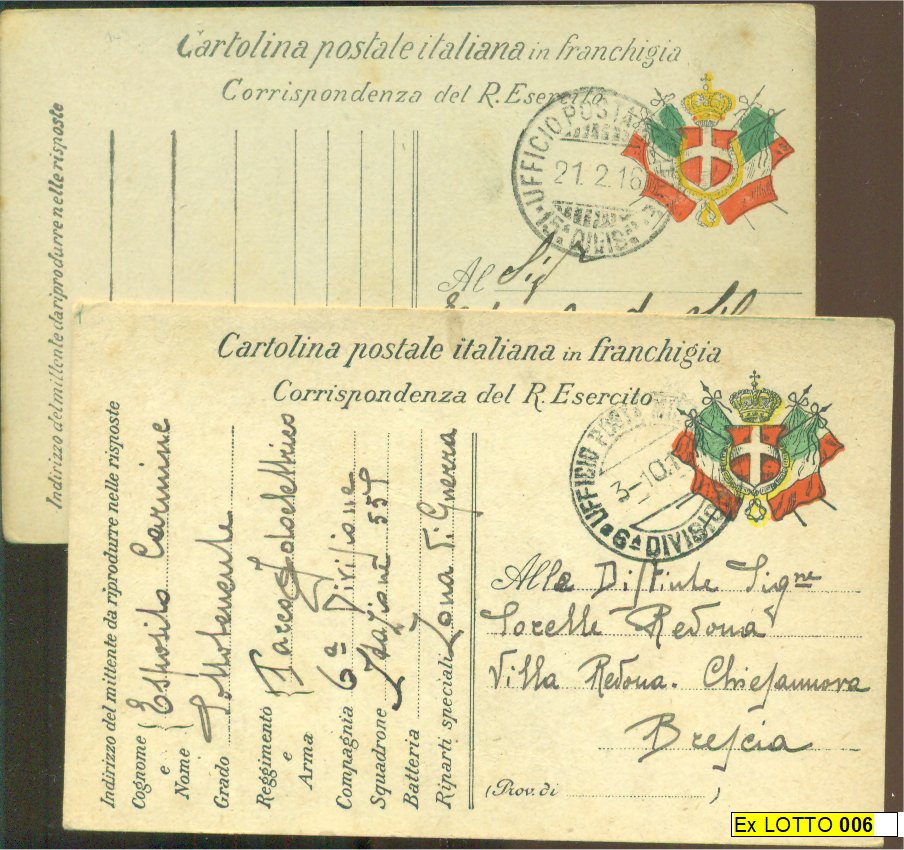 Cartolina postale italiana in franchigia
Corrispondenza del R. Esercito
Indirizzo del mittente da riprodurre nelle risposte
UFFICIO POSTA
21. 2. 16
15ª DIVIS
Al Sig
Cartolina postale italiana in franchigia
Corrispondenza del R. Esercito
UFFICIO POSTA
3 10
6ª DIVISIO
Indirizzo del mittente da riprodurre nelle risposte
Cognome e Nome { Esposito Carmine
Grado Sottotenente
Reggimento e Arma { Parco
Compagnia 6ª Divisione
Squadrone Stazione 55
Batteria
Riparti speciali Zona di Guerra
Alle Distinte Signe
Sorelle Redona
Villa Redona. Chiesanuova
Brescia
(Prov. di )
Ex LOTTO 006